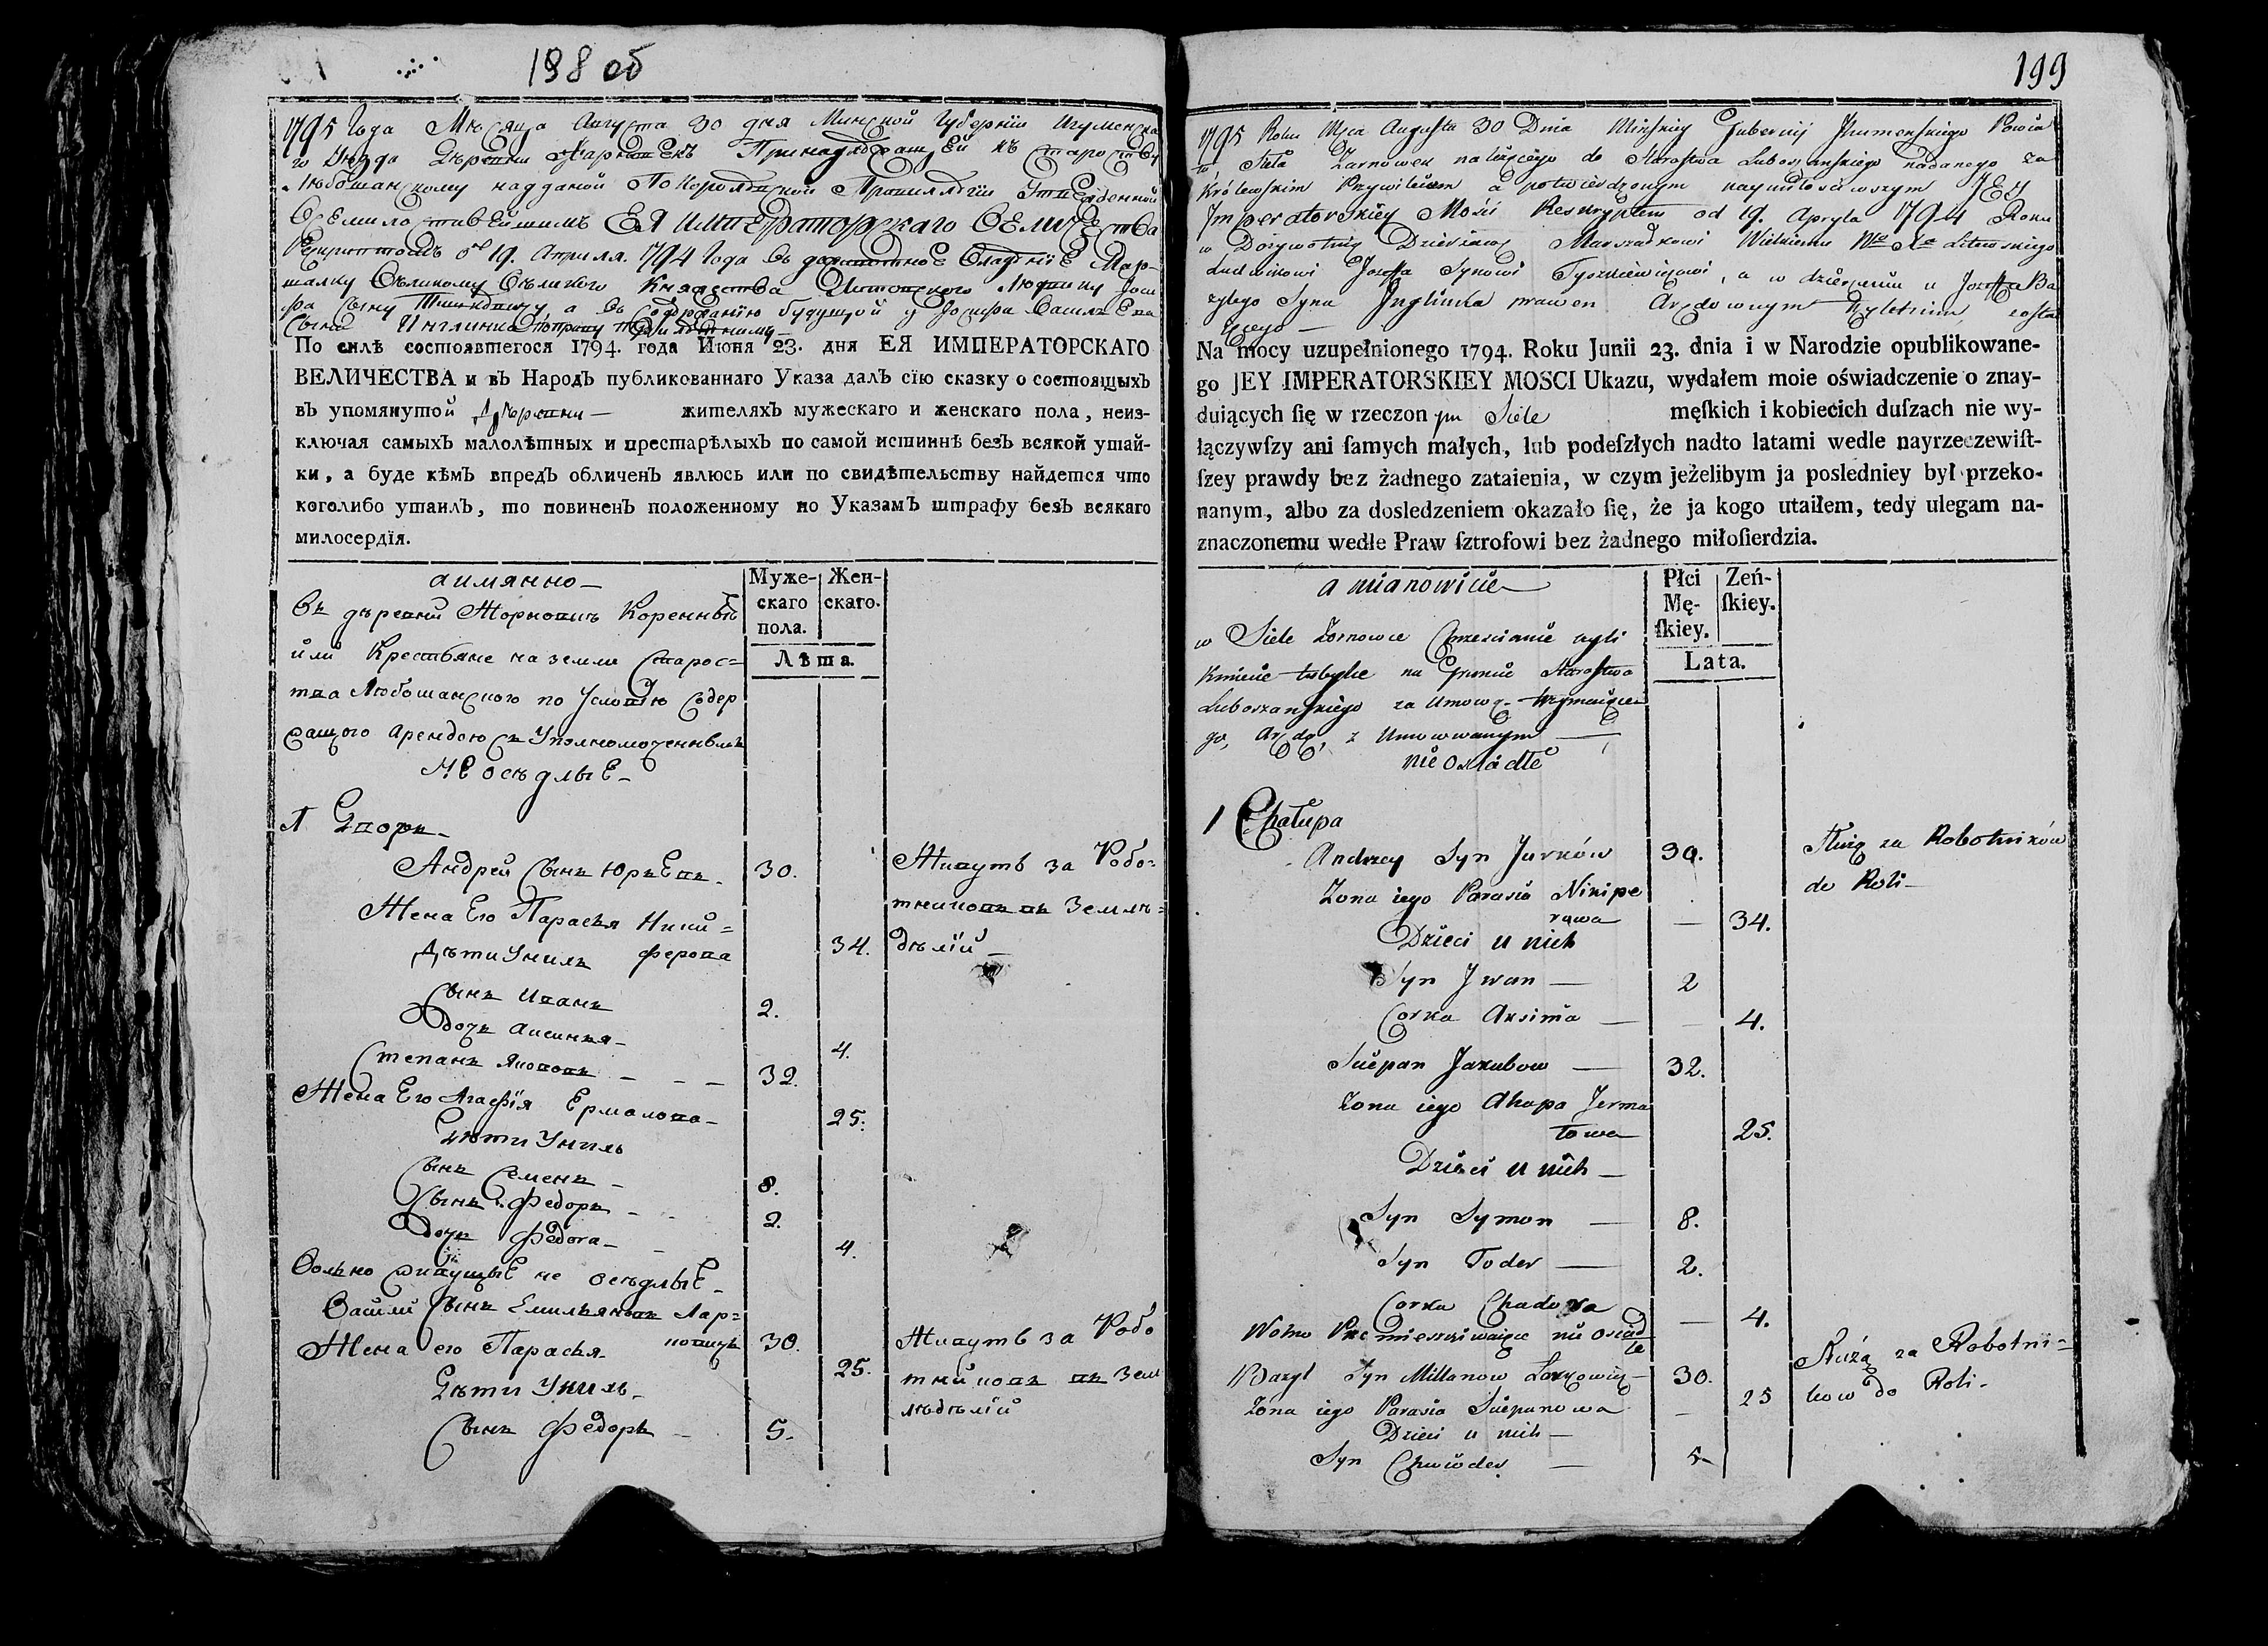 198 об
1795 Года Мѣсяца Августа 30 дня Минской Губерніи Игуменска
го Уѣзда Деревни Жарновекъ Принадлежащей къ Староству
Любошанскому наданой По Королевской Привиллегіи Утвержденной
Всемилостивейшимъ ЕЯ ИМПЕРАТОРСКАГО ВЕЛИЧЕСТВА
Рескриптомъ отъ 19. Априля 1794 Года въ доживотное владѣніе Мар-
шалку Великому Великого Князства Литовского Людвику Іоси
фа Сыну Тишкевичу а въ Содержанію будущой у Іосифа Василиева
Сына Инглинка
По силѣ состоявшегося 1794. года Июня 23. дня ЕЯ ИМПЕРАТОРСКАГО
ВЕЛИЧЕСТВА и въ Народъ публикованнаго Указа далъ сїю сказку о состоящыхъ
въ упомянутой Деревни — жителяхъ мужескаго и женскаго пола, неиз-
ключая самыхъ малолѣтныхъ и престарѣлыхъ по самой истиннѣ безъ всякой утай-
ки, а буде кѣмъ впредъ обличенъ явлюсь или по свидѣтельству найдется что
коголибо утаилъ, то повиненъ положенному по Указамъ штрафу безъ всякаго
милосердїя.
аимянно —
Муже-
скаго
пола.
Жен-
скаго.
Лѣта.
въ деревни Жорновцъ Коренные
или Крестьяне на земли Старос=
тва Любошанского по Условію Содер
жащого арендою съ Уполномоченнымъ
НЕ осѣдлыЕ —
1 Дворъ —
Андрей Сынъ Юрьевъ — 30.
Живутъ за Робо=
тниковъ въ Землѣ=
дѣлій —
Жена Его Парасья Ники=
ферова 34.
Дѣти У нихъ
Сынъ Иванъ 2.
Дочь Аксинья — 4.
Степанъ Якововъ — — — 32.
Жена Его Агафїя Ермалова — 25.
Дѣти У нихъ
Сынъ Семенъ — 8.
Сынъ Федоръ — — 2.
Дочь Федога — — 4.
Вольно живущыЕ не осѣдлыЕ —
Васили Сынъ Емильяновъ Лар=
новичъ 30.
Живутъ за Робо
тниковъ въ Зем
лѣдѣлій
Жена его Парасья — 25.
Дѣти У нихъ —
Сынъ Федоръ — 5.
199
1795 Roku Mca Augusta 30 Dnia Minskiey Gubernij Ihumenskiego Powia
tu, Sieła Żarnowek należącego do Starostwa Luboszanskiego nadanego za
Królewskim Przywilejem a potwierdzonym naymiłościwszym JEY
Imperatorskiey Mości Reskryptem od 19. Apryla 1794 Roku
w Dożywotnią Dzierżawę Marszałkowi Wielkiemu Wo Xa Litewskiego
Ludwikowi Jozefa Synowi Tyszkiewiczowi, a w dzierżeniu u Jozefa Ba
zylego Syna Inglinka prawem Arędownym zosta
iącego —
Na mocy uzupełnionego 1794. Roku Junii 23. dnia i w Narodzie opublikowane-
go JEY IMPERATORSKIEY MOSCI Ukazu, wydałem moie oświadczenie o znay-
duiących ſię w rzeczon ym Siele męſkich i kobiecich duſzach nie wy-
łączywſzy ani ſamych małych, lub podeſzłych nadto latami wedle nayrzeczewiſt-
ſzey prawdy bez żadnego zataienia, w czym jeżelibym ja posledniey był przeko-
nanym, albo za dosledzeniem okazało ſię, że ja kogo utaiłem, tedy ulegam na-
znaczonemu wedle Praw ſztrofowi bez żadnego miłoſierdzia.
a mianowicie
Płci
Mę-
ſkiey.
Zeń-
ſkiey.
Lata.
w Siele Żornowce Chrzescianie czyli
Kmiecie tubylce na Gruncie Starostwa
Luboszanskiego za Umową Trzymaiące
go, Arędą, z Umocowanym —
nie osiadłe
1 Chałupa
Andrzey Syn Jurków 30.
Służą za Robotników
do Roli —
Żona iego Parasia Nikipe
rowa — 34.
Dzieci u nich
Syn Jwan — 2
Corka Aksinia — — 4.
Sciepan Jakubow — 32.
Żona iego Ahapa Jerma
łowa 25.
Dzieci u nich —
Syn Symon — 8.
Syn Todor — 2.
Corka Chadora — 4.
Wolno Przemieszkiwaiące nie osiad
łe
Bazyl Syn Millanow 30.
Służą za Robotni=
kow do Roli —
Żona iego Parasia Sciepanowa — 25
Dzieci u nich —
Syn Chwiodor — 5